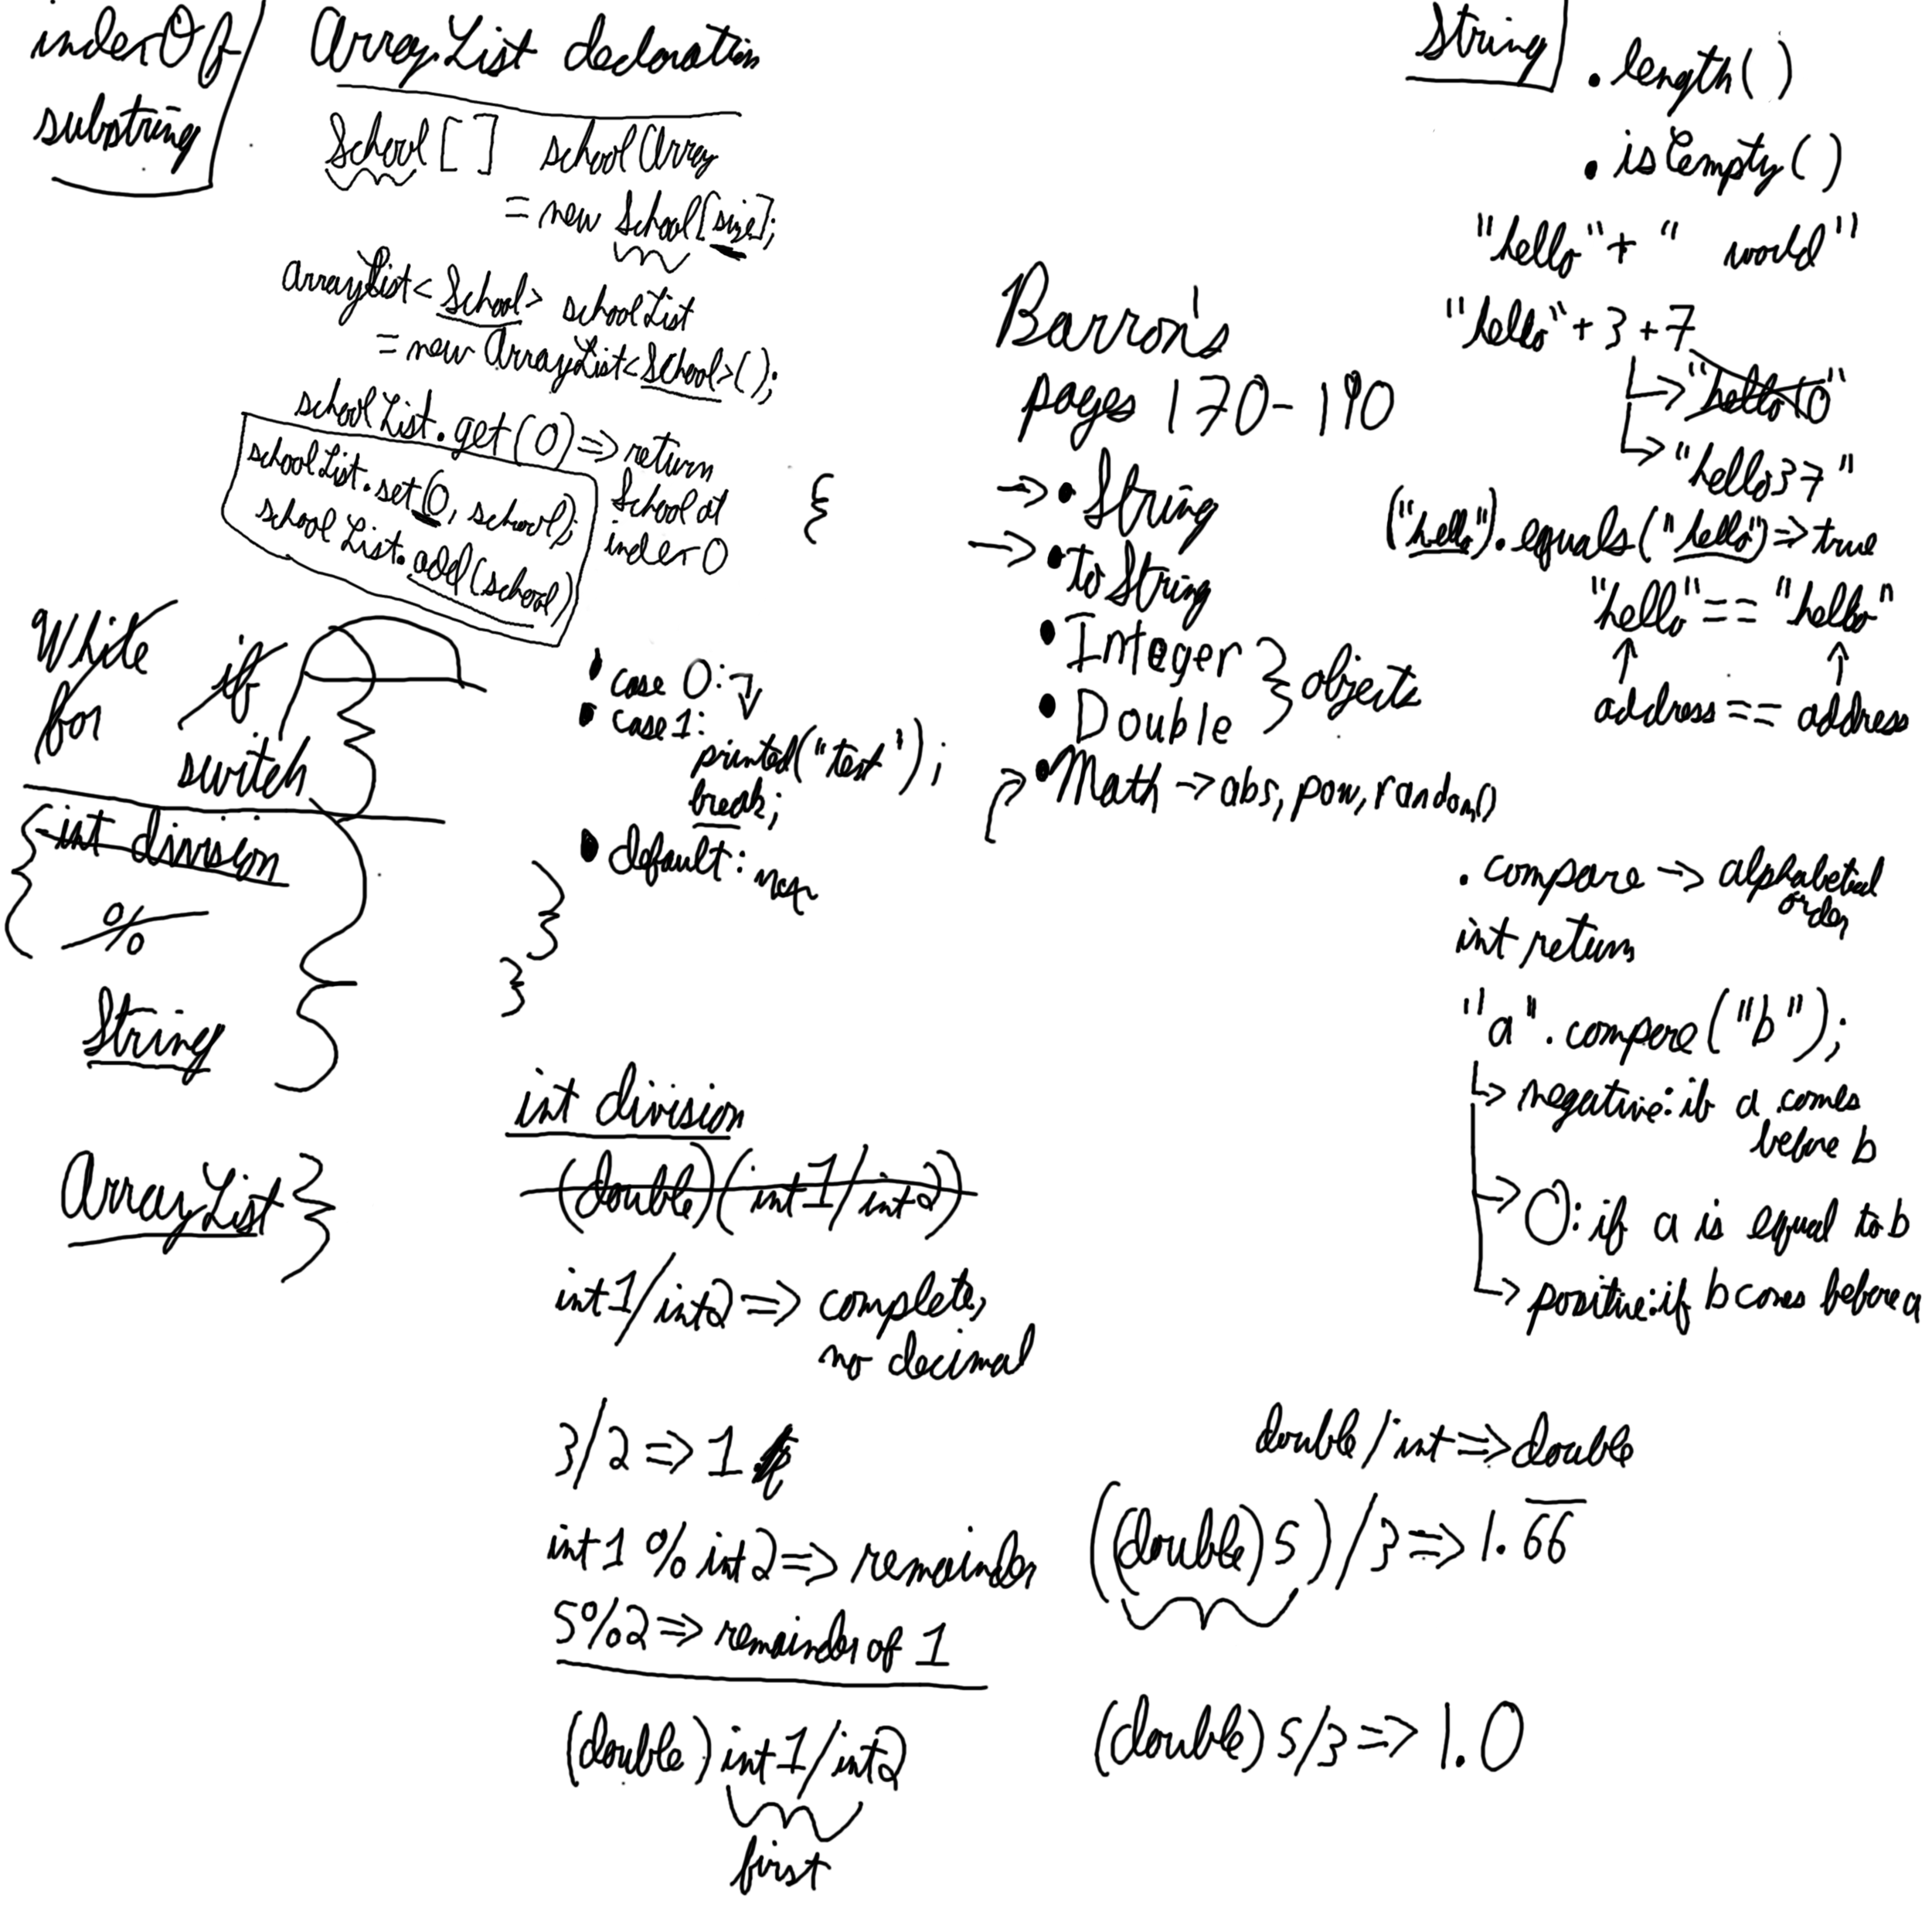 indexOf
substring
ArrayList declaration
School[] schoolArray
= new School[size];
ArrayList<School> schoolList
= new ArrayList<School>();
schoolList.get(0) => return
School at
index 0
schoolList.set(0, school);
schoolList.add(school)
While
for
if
switch
int division
%
String
ArrayList }
{
• case 0:
• case 1:
printed("test");
break;
• default:
}
}
int division
(double)(int1/int2)
int1/int2 => complete,
no decimal
3/2 => 1
int1 % int2 => remainder
5%2 => remainder of 1
(double) int1/int2
first
Barron's
pages 170-190
-> • String
-> • to String
• Integer
• Double
} objects
• Math -> abs, pow, random()
String
• length()
• isEmpty()
"hello" + " world"
"hello" + 3 + 7
-> "hello10"
-> "hello37"
("hello").equals("hello") => true
"hello" == "hello"
address == address
. compare -> alphabetical
order
int return
"a".compare("b");
-> negative: if a comes
before b
-> 0: if a is equal to b
-> positive: if b comes before a
double/int => double
((double)5)/3 => 1.66
(double) 5/3 => 1.0